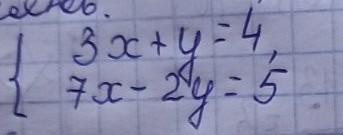 3x+y=4,
7x-2y=5